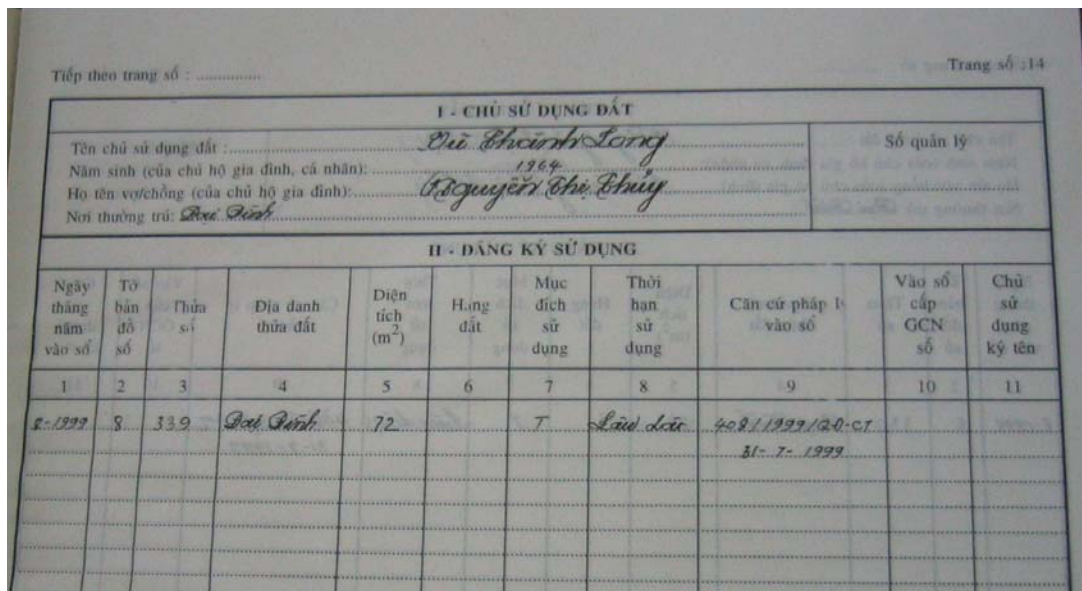 Tiếp theo trang số : ...............
Trang số :14
I - CHỦ SỬ DỤNG ĐẤT
Tên chủ sử dụng đất : Vũ Thành Long
Số quản lý
Năm sinh (của chủ hộ gia đình, cá nhân): 1964
Họ tên vợ/chồng (của chủ hộ gia đình): Nguyễn Thị Thủy
Nơi thường trú: Đại Đình
II - ĐĂNG KÝ SỬ DỤNG
Ngày tháng năm vào sổ
Tờ bản đồ số
Thửa số
Địa danh thửa đất
Diện tích (m²)
Hạng đất
Mục đích sử dụng
Thời hạn sử dụng
Căn cứ pháp lý vào sổ
Vào sổ cấp GCN số
Chủ sử dụng ký tên
1 2 3 4 5 6 7 8 9 10 11
8-1999 8 339 Đại Đình 72 T Lâu dài 408/1999/QĐ-CT
31-7-1999